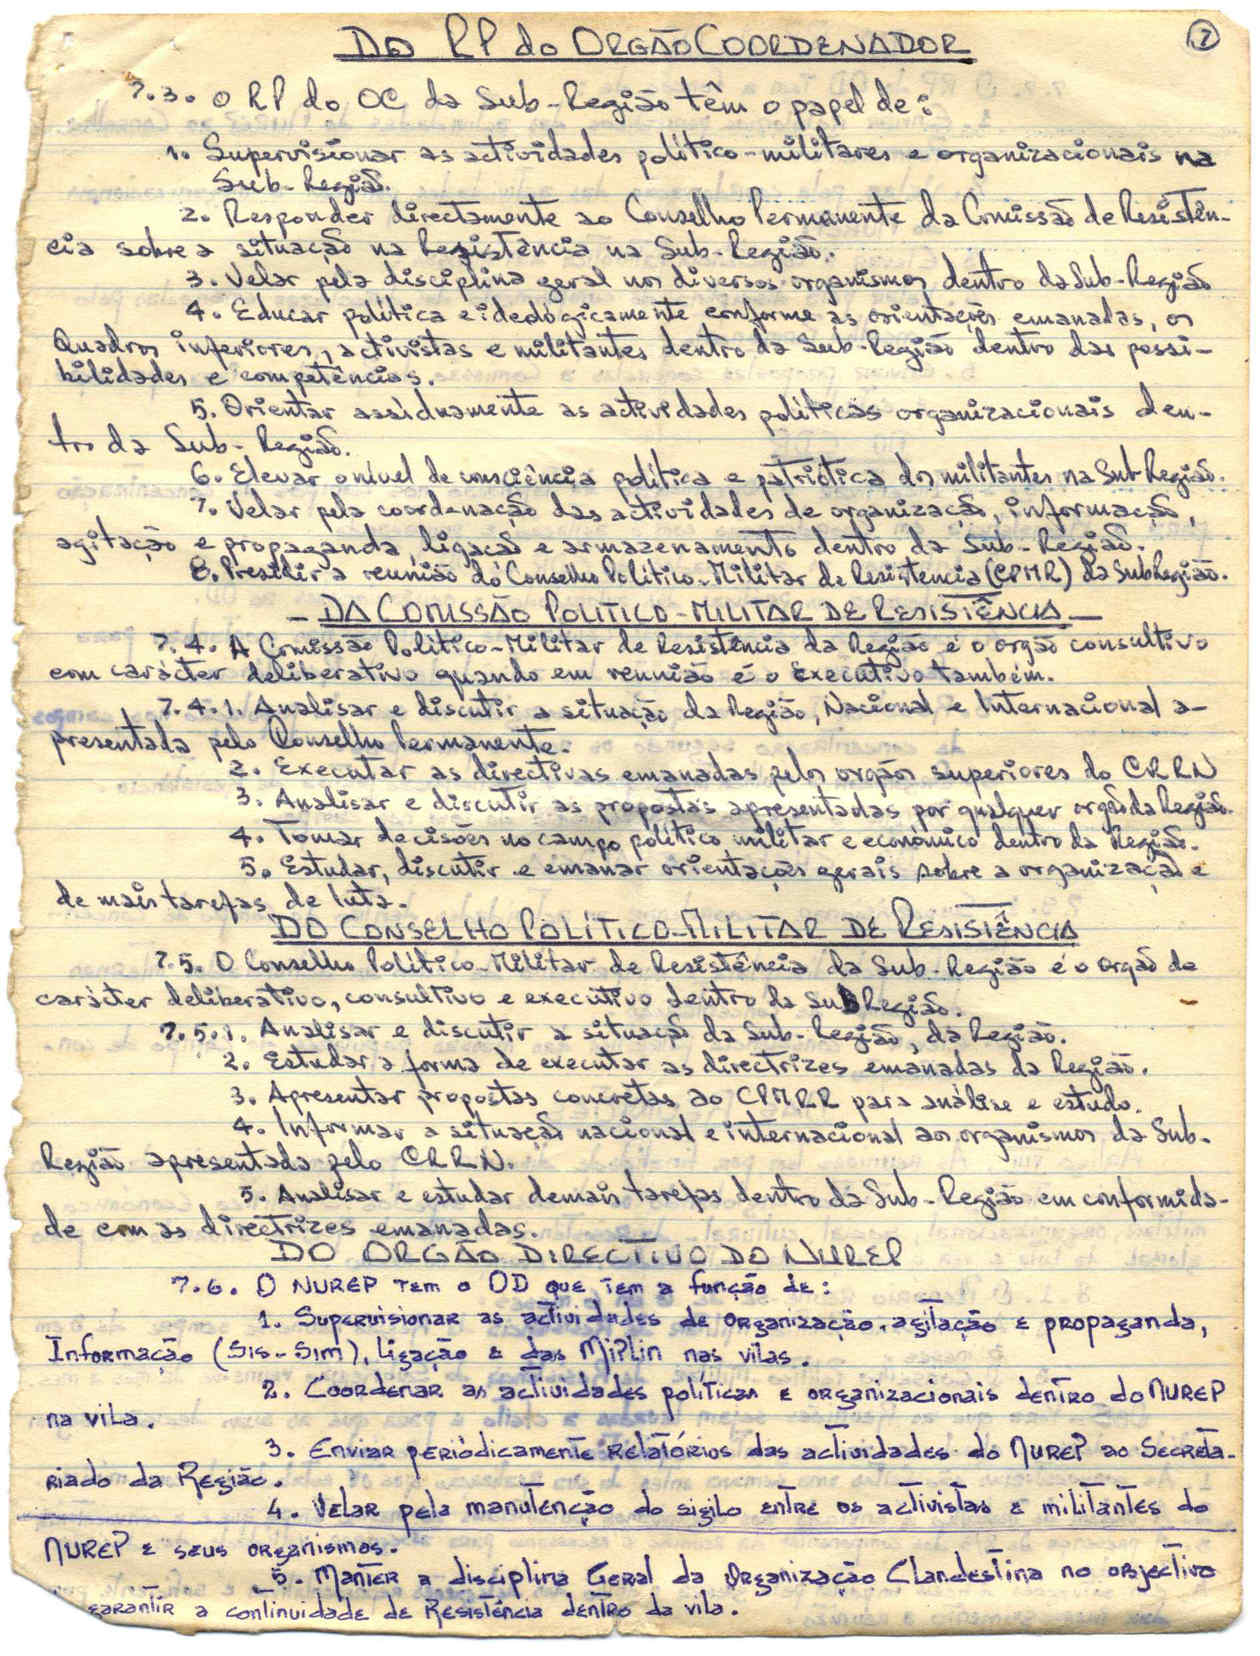 DO RP do ORGÃO COORDENADOR
7
7.3. O RP do OC da Sub-Região têm o papel de:
1. Supervisionar as actividades político-militares e organizacionais na
Sub-Região.
2. Responder directamente ao Conselho Permanente da Comissão de Resistên-
cia sobre a situação na Resistência na Sub-Região.
3. Velar pela disciplina geral nos diversos organismos dentro da Sub-Região
4. Educar política e ideológicamente conforme as orientações emanadas, os
Quadros inferiores, activistas e militantes dentro da Sub-Região dentro das possi-
bilidades e competências.
5. Orientar assíduamente as actividades políticas organizacionais den-
tro da Sub-Região.
6. Elevar o nível de consciência política e patriótica dos militantes na Sub-Região.
7. Velar pela coordenação das actividades de organização, informação,
agitação e propaganda, ligação e armazenamento dentro da Sub-Região.
8. Presidir a reunião do Conselho Político-Militar de Resistência (CPMR) da SubRegião.
- DA COMISSÃO POLITICO-MILITAR DE RESISTÊNCIA -
7.4. A Comissão Político-Militar de Resistência da Região é o orgão consultivo
com carácter deliberativo quando em reunião é o executivo também.
7.4.1. Analisar e discutir a situação da Região, Nacional e Internacional a-
presentada pelo Conselho Permanente.
2. Executar as directivas emanadas pelos orgãos superiores do CRRN
3. Analisar e discutir as propostas apresentadas por qualquer orgão da Região.
4. Tomar decisões no campo político militar e económico dentro da Região.
5. Estudar, discutir e emanar orientações gerais sobre a organização e
de mais tarefas de luta.
DO CONSELHO POLÍTICO-MILITAR DE RESISTÊNCIA
7.5. O Conselho Político-Militar de Resistência da Sub-Região é o orgão de
carácter deliberativo, consultivo e executivo dentro da SubRegião.
7.5.1. Analisar e discutir a situação da Sub-Região, da Região.
2. Estudar a forma de executar as directrizes emanadas da Região.
3. Apresentar propostas concretas ao CPMRR para análise e estudo.
4. Informar a situação nacional e internacional aos organismos da Sub-
Região apresentada pelo CRRN.
5. Analisar e estudar demais tarefas dentro da Sub-Região em conformida-
de com as directrizes emanadas.
DO ORGÃO DIRECTIVO DO NUREP
7.6. O NUREP tem o OD que tem a função de:
1. Supervisionar as actividades de organização, agitação e propaganda,
Informação (Sis-Sim), ligação e das Miplin nas vilas.
2. Coordenar as actividades políticas e organizacionais dentro do NUREP
na vila.
3. Enviar periódicamente relatórios das actividades do NUREP ao Secreta-
riado da Região.
4. Velar pela manutenção do sigilo entre os activistas e militantes do
NUREP e seus organismos.
5. Manter a disciplina Geral da Organização Clandestina no objectivo
garantir a continuidade de Resistência dentro da vila.